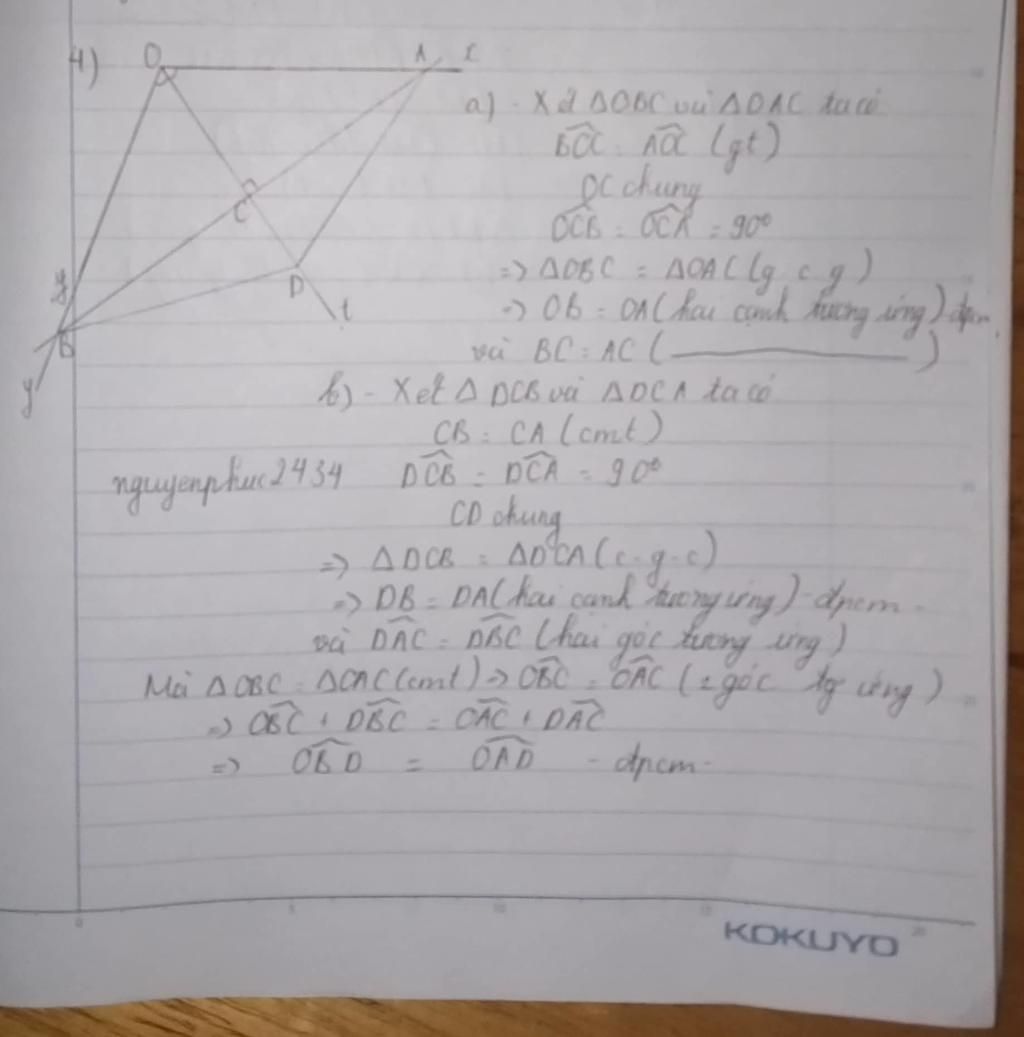 4)
O A x
a) - Xét ΔOBC và ΔOAC ta có
BÔC = AÔC (gt)
OC chung
C
OCB = OCA = 90°
y
D
=> ΔOBC = ΔOAC (g c g)
t
=> OB = OA (hai cạnh tương ứng) - đpcm
B
và BC = AC ( ———— )
y
b) - Xét Δ DCB và ΔDCA ta có
CB = CA (cmt)
nguyenphuc2434 DCB = DCA = 90°
CD chung
=> ΔDCB = ΔDCA (c-g-c)
=> DB = DA (hai cạnh tương ứng) - đpcm -
và DAC = DBC (hai góc tương ứng)
Mà ΔOBC = ΔOAC (cmt) => OBC = OAC (2 góc tg ứng)
=> OBC + DBC = OAC + DAC
=> OBD = OAD - đpcm -
KOKUYO